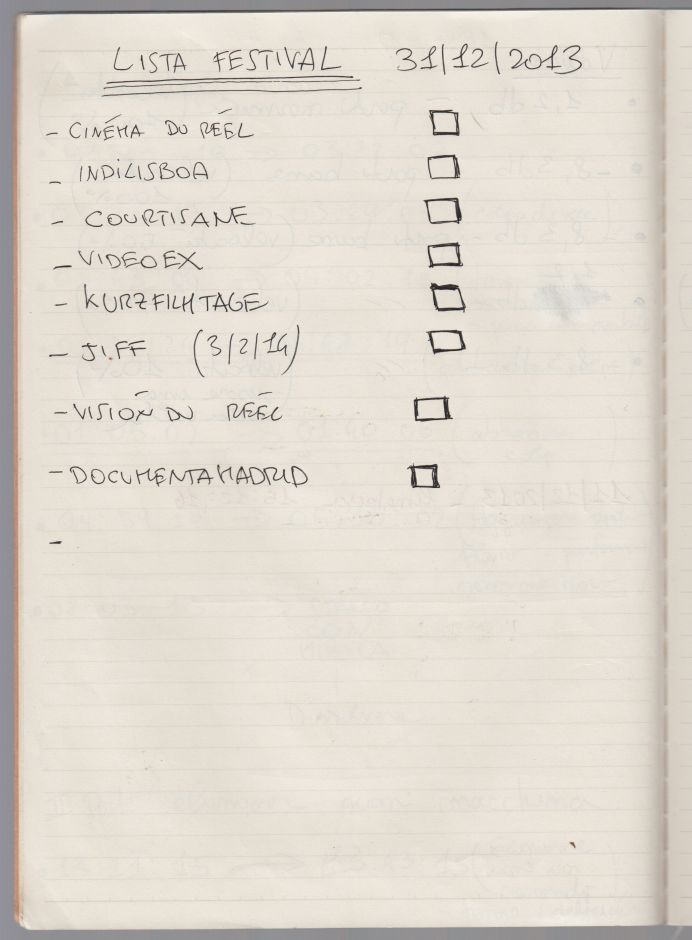 LISTA FESTIVAL 31/12/2013
- CINÉMA DU RÉEL ☐
- INDILISBOA ☐
- COURTISANE ☐
- VIDEOEX ☐
- KURZFILMTAGE ☐
- JIFF (3/2/14) ☐
- VISIÓN DU RÉEL ☐
- DOCUMENTAMADRID ☐
-